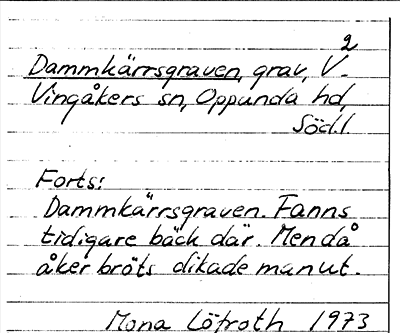 2
Dammkärrsgraven, grav, V.
Vingåkers sn, Oppunda hd,
Söd.l
Forts:
Dammkärrsgraven. Fanns
tidigare bäck där. Men då
åker bröts dikade man ut.
Mona Löfroth 1973